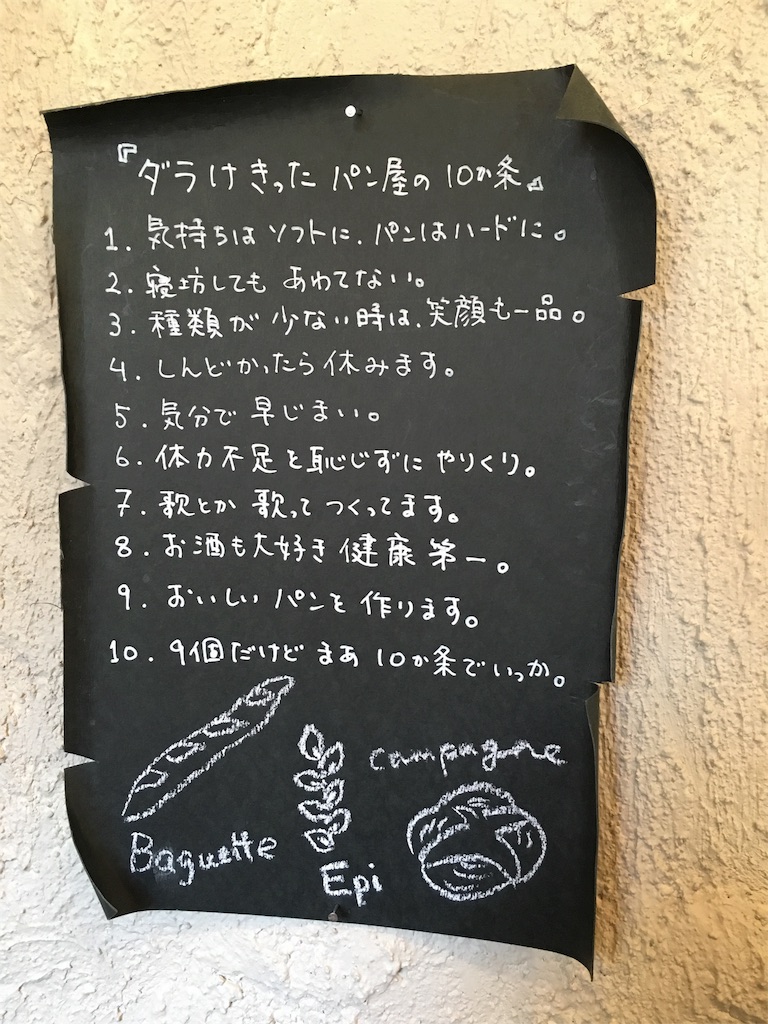 『ダラけきったパン屋の10か条』
1. 気持ちはソフトに、パンはハードに。
2. 寝坊しても あわてない。
3. 種類が 少ない時は、笑顔も一品。
4. しんどかったら休みます。
5. 気分で 早じまい。
6. 体力不足を恥じずに やりくり。
7. 歌とか 歌って つくってます。
8. お酒も大好き 健康第一。
9. おいしい パンを 作ります。
10. 9個だけど まあ 10か条でいっか。
campagne
Baguette
Epi